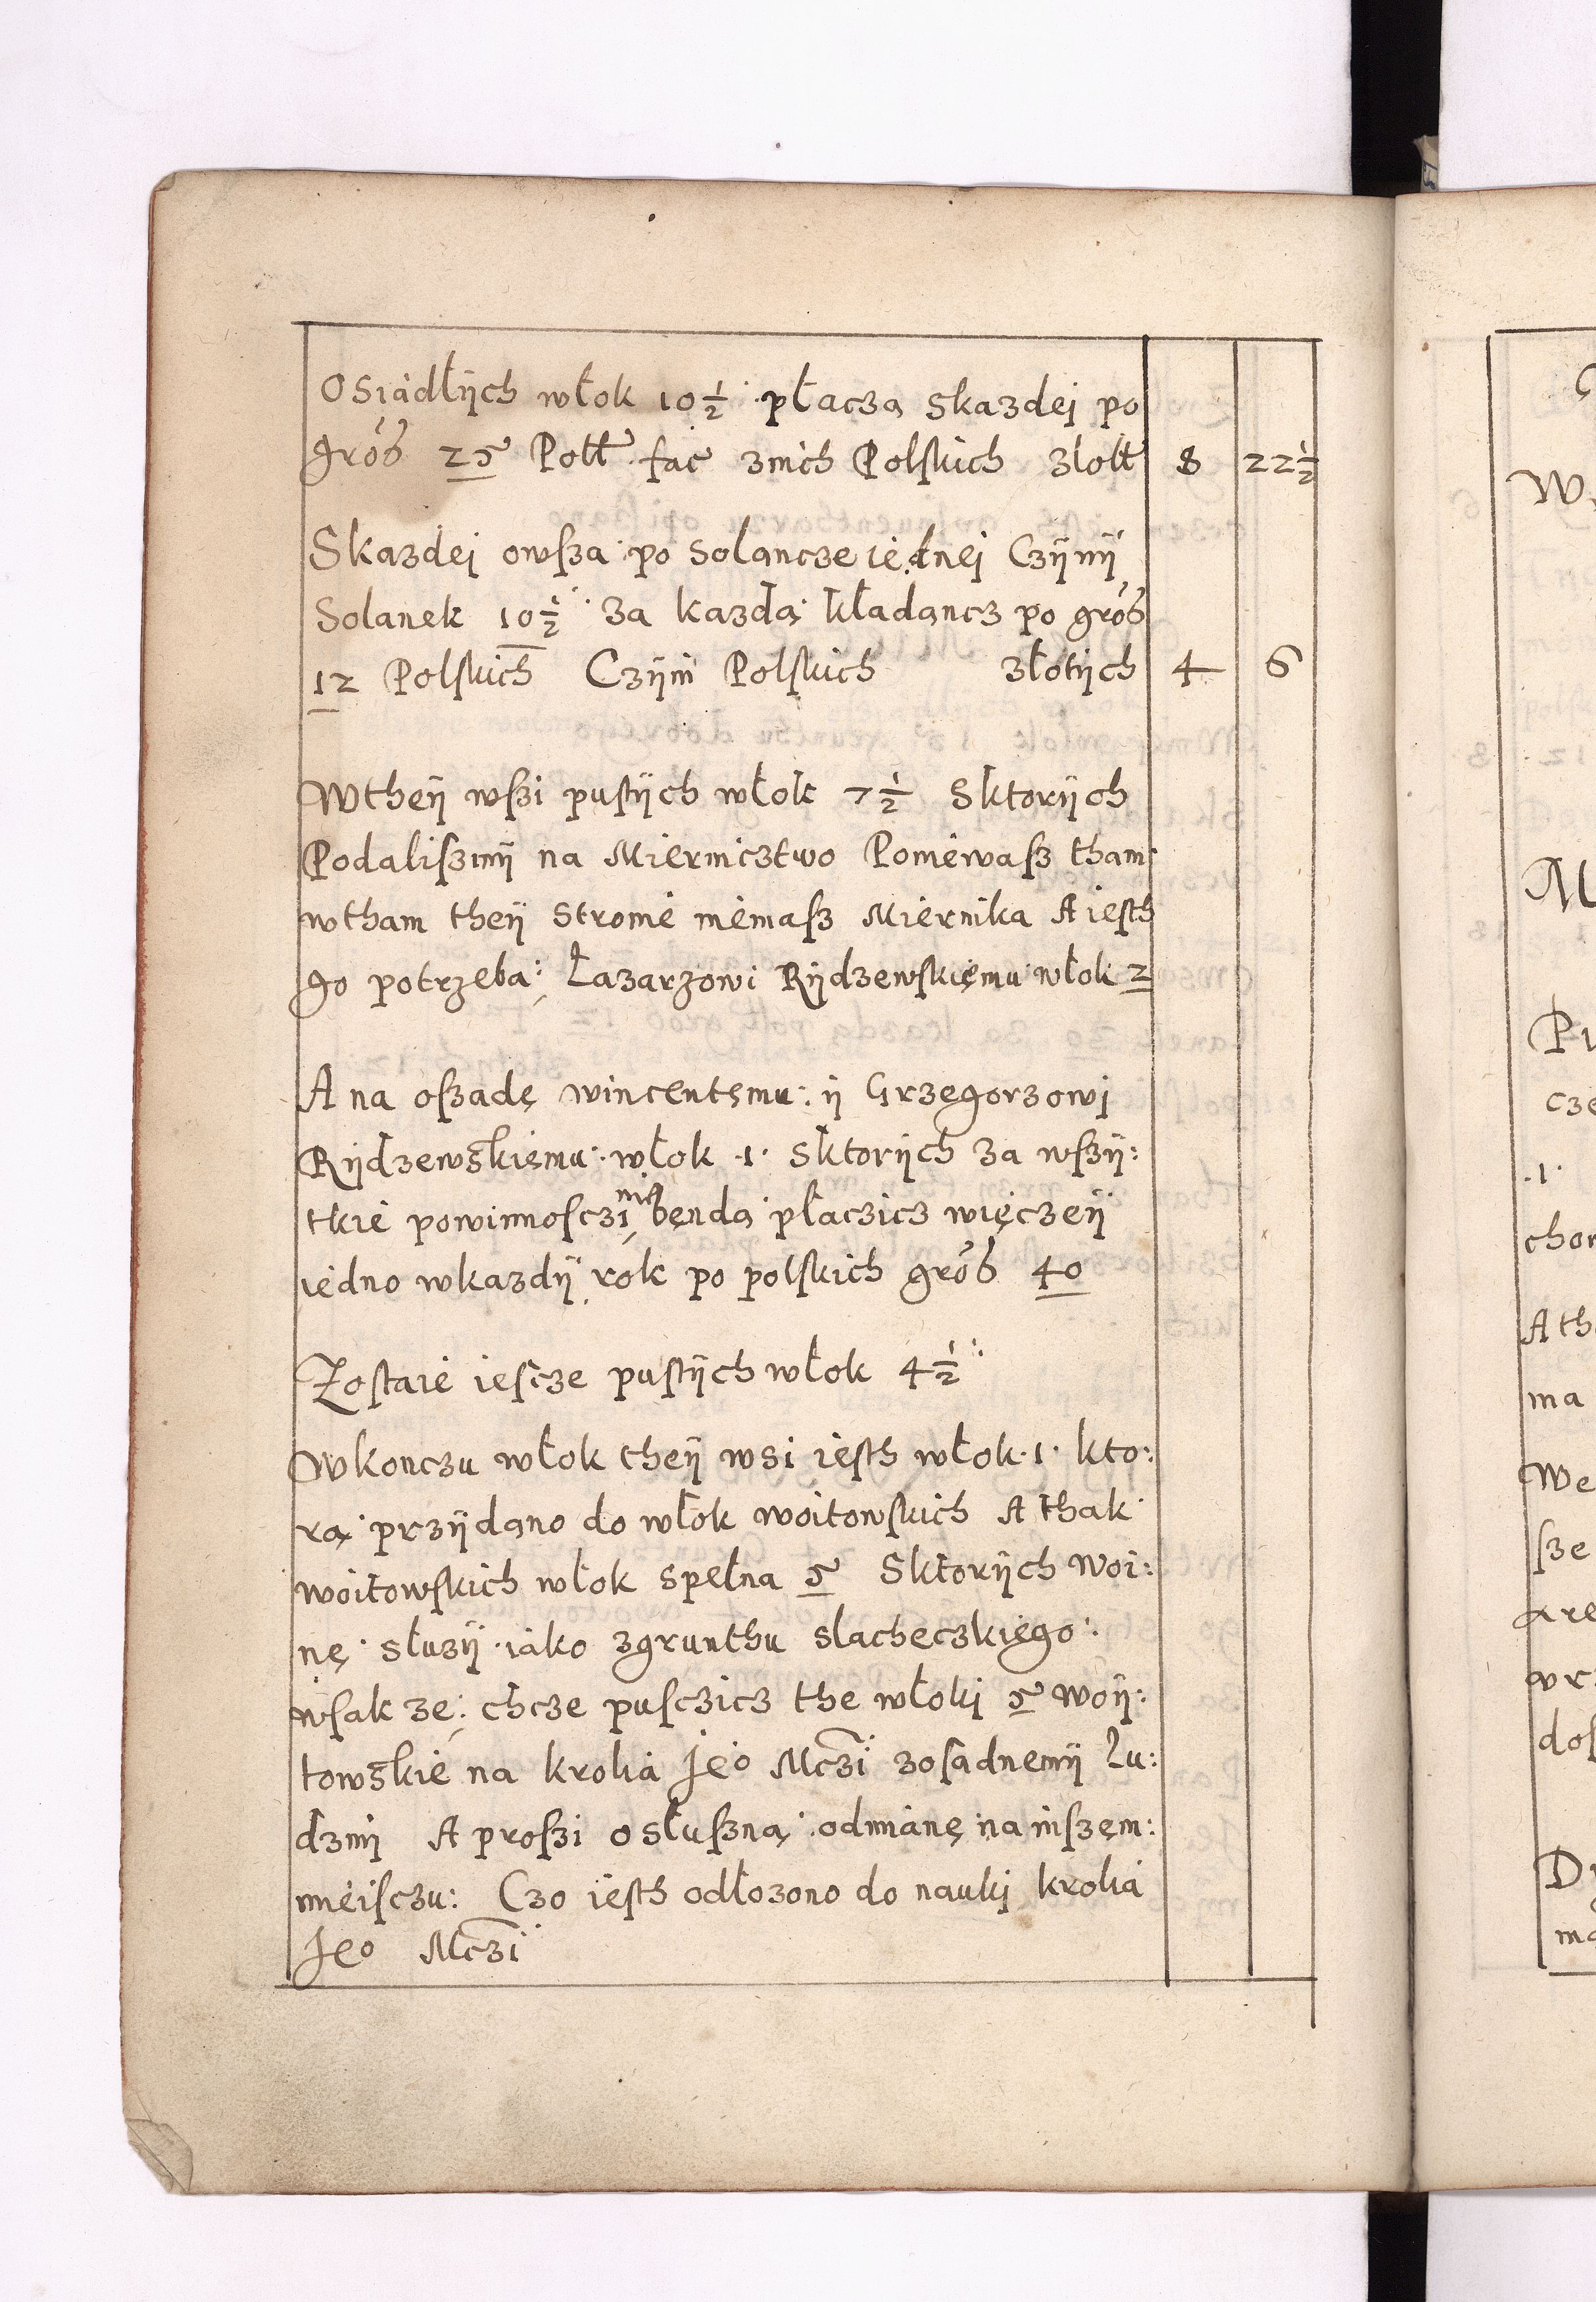 Osiadłÿch włok 10½ płaczą skazdej po
gros 25 Poll fac znich Polskich złott 8 22½
Skazdej owsza po solancze iednej Czÿnÿ
Solanek 10½ za kazdą kładancz po gros
12 Polskich Czÿni Polskich złotÿch 4 6
Wtheÿ wszi pustÿch włok 7½ Sktorÿch
Podaliszmÿ na Miernicztwo Poniewasz tham
wtham theÿ stronie niemasz Miernika A iesth
go potrzeba: Łazarzowi Rÿdzewskięmu włok 2
A na oszadę wincentemu: ÿ Grzegorzowi
Rÿdzewskiemu włok .1. sktorÿch za wszÿ:
tkie powinnosczi nic bęndą płaczicz więczeÿ
iedno wkazdÿ rok po polskich gros 40
Zostaie iescze pustÿch włok 4½
Wkonczu włok theÿ wsi iesth włok .1. kto:
rą przÿdano do włok woitowskich A thak
woitowskich włok spełna 5 Sktorÿch woi:
nę służÿ iako zgrunthu slacheczkiego:
wsak ze: chcze pusczicz the włoki 5 woÿ:
towskie na krolia Jeo Mczi zosadnemÿ lu:
dzmi A proszi o słuszną odmianę na inszem:
mieisczu: Czo iesth odłozono do nauki krolia
Jeo Mczi
A th
ma
We
sze
are
chor
Pr
cze
.1.
dos